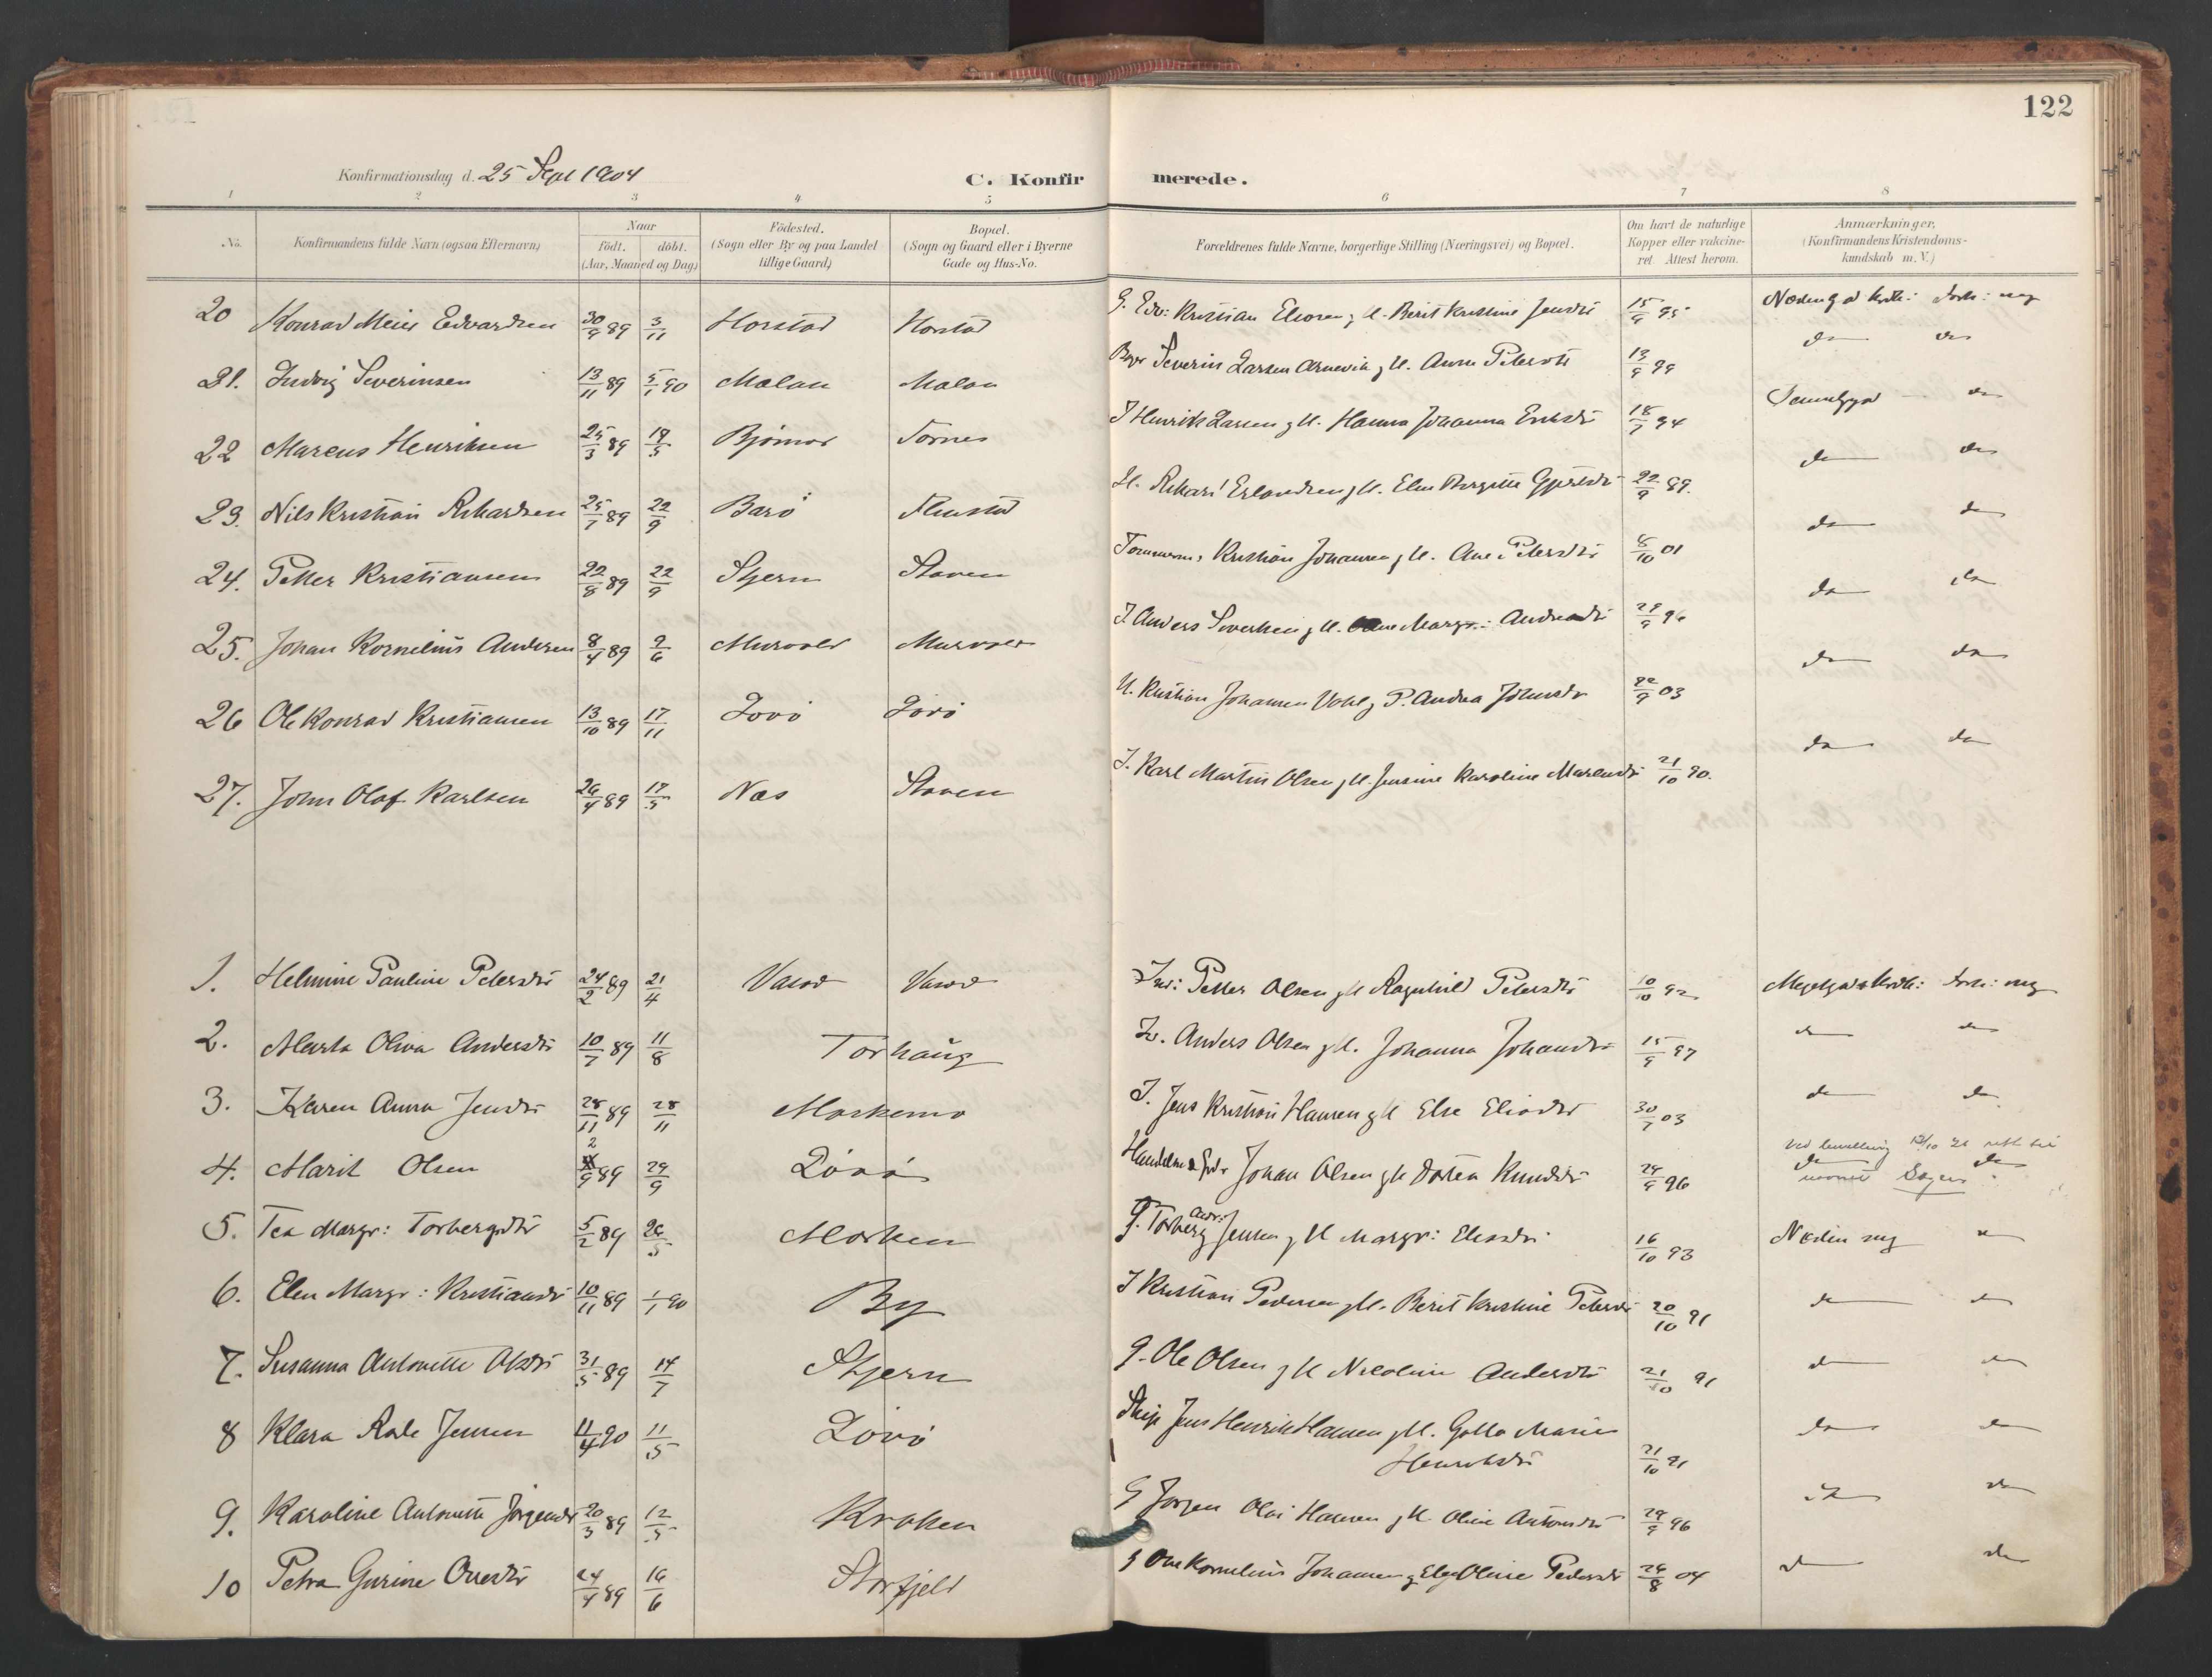 122
Konfirmationsdag d. 25 Sept 1904
C. Konfirmerede.
1 2 3 4 5 6 7 8
No. Konfirmandens fulde Navn (ogsaa Efternavn) Naar födt. döbt. (Aar, Maaned og Dag) Födested. (Sogn eller By og paa Landet tillige Gaard) Bopæl. (Sogn og Gaard eller i Byerne Gade og Hus-No. Forældrenes fulde Navne, borgerlige Stilling (Næringsvei) og Bopæl. Om havt de naturlige Kopper eller vakcineret. Attest herom. Anmærkninger, (Konfirmandens Kristendomskundskab m. V.)
20 Konrad Meier Edvardsen 30/9 89 3/11 Horstad Horstad G. Edv: Kristian Eliasen g H. Berit Kristine Jensdtr 15/9 95
21. Ludvig Severinsen 13/11 89 5/1 90 Mælan Mælan Severin Larsen Arnevik g H. Anna Petersdtr 13/9 99 do do
22 Marcus Henriksen 25/3 89 19/5 Bjørnor Tørnes I Henrik Larsen g H. Hanna Johanna Eriksdtr 18/7 94 do
23. Nils Kristian Rikardsen 25/7 89 22/9 Barø H. Rikard Erlandsen g H. Elen Birgitte 22/9 89. do do
24. Petter Kristiansen 22/8 89 22/9 Stjern Staven Tømmerm. Kristian Johansen g H. Ane Petersdtr 8/10 01 do do
25. Johan Kornelius Andersen 8/4 89 9/6 Murvold Murvold I. Anders Sivertsen g H. Margr: Andreasdtr 29/9 96 do do
26 Ole Konrad Kristiansen 13/10 89 17/11 Lövö Lövö U. Kristian Johansen g P. Andrea Johnsdtr 22/9 03 do do
27. John Olaf Karlsen 26/4 89 17/5 Næs Staven I. Karl Martin Olsen g H. Jensine Karoline 21/10 90. do do
1. Helmine Pauline Petersdtr 24/2 89 21/4 Vasød Vasød Petter Olsen g H Ragnhild Petersdtr 10/10 92
2. Marta Oliva Andersdtr 10/7 89 11/8 Torhaug Anders Olsen g H. Johanna Johansdtr 15/9 97 do do
3. Karen Anna Jensdtr 28/11 89 28/11 Morkemo I. Jens Kristian Hansen g H Else Eliasdtr 30/7 03 do do
4. Marit Olsen 2/9 89 29/9 Lövö Johan Olsen g H Dortea Knudsdtr 29/9 96 do do
Ved bevilling 12/10 21 navnet Søyer
5. Tea Margr: Torbergsdtr 5/2 89 26/5 Morken G. Torberg Andr: Jensen g H Margr: Eliasdtr 16/10 93
6. Elen Margr: Kristiansdtr 10/11 89 1/1 90 By I Kristian Pedersen g H. Berit Kristine Petersdtr 20/10 91 do do
7. Susanna Antonette Olsdtr 31/5 89 14/7 Stjern G. Ole Olsen g H Nicoline Andersdtr 21/10 91 do do
8 Klara Jensen 11/4 90 11/5 Lövö Jens Henrik Hansen g H. Marie Henriksdtr 21/10 91 do do
9. Karoline Antonette Jörgensdtr 20/3 89 12/5 Kroken G Jörgen Olai Hansen g H. Oline Antonsdtr 29/9 96 do do
10 Petra Gurine Ovesdtr 24/4 89 16/6 Storfjeld G Ove Kornelius Johansen g Oline Pedersdtr 26/8 04 do do